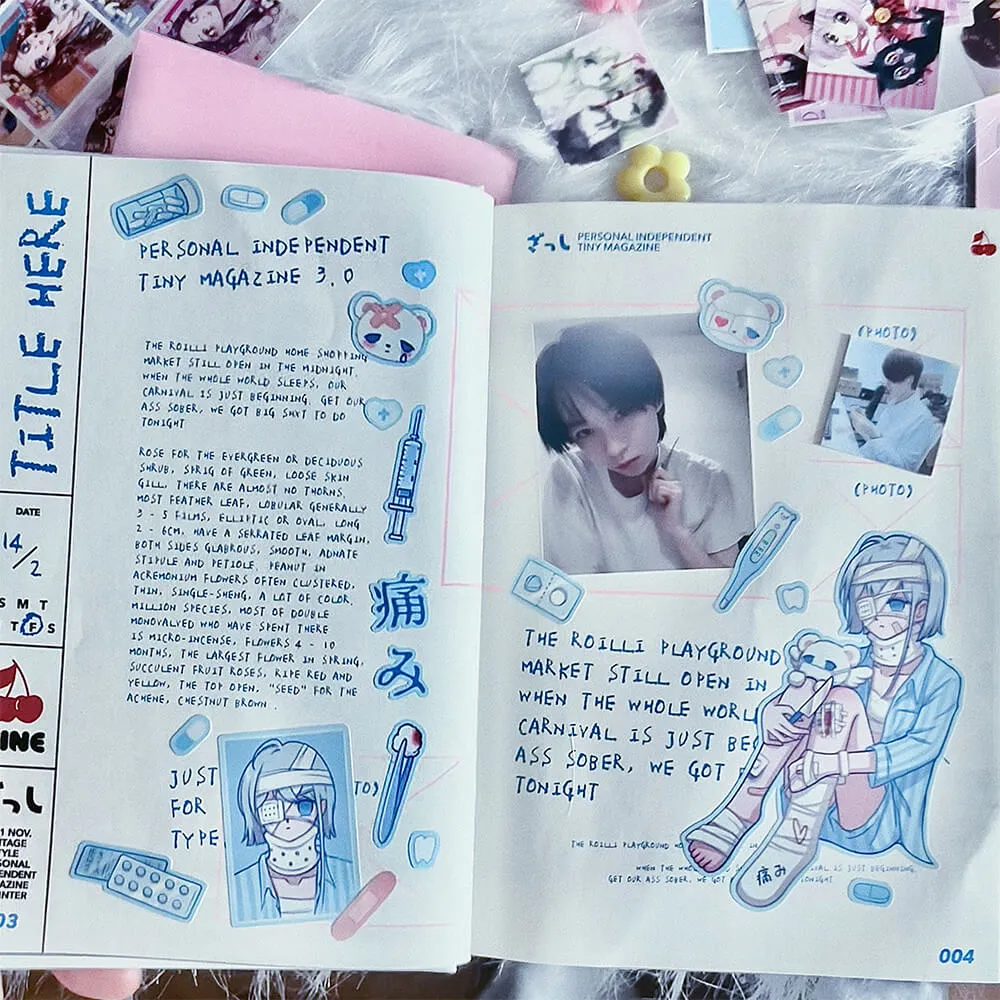 TiTLE HERE
DATE
14/2
S M T
T F S
INE
っし
1 NOV.
03
PERSONAL INDEPENDENT
TINY MAGAZINE 3.0
THE ROILLI PLAYGROUND HOME SHOPPING
MARKET STILL OPEN IN THE MIDNIGHT.
WHEN THE WHOLE WORLD SLEEPS, OUR
CARNIVAL IS JUST BEGINNING. GET OUR
ASS SOBER, WE GOT BIG SHXT TO DO
TONIGHT
ROSE FOR THE EVERGREEN OR DECIDUOUS
SHRUB, SPRIG OF GREEN, LOOSE SKIN
GILL, THERE ARE ALMOST NO THORNS.
MOST FEATHER LEAF, LOBULAR GENERALLY
3 - 5 FILMS, ELLIPTIC OR OVAL, LONG
2 - 6CM, HAVE A SERRATED LEAF MARGIN,
BOTH SIDES GLABROUS, SMOOTH, ADNATE
STIPULE AND PETIOLE. PEANUT IN
ACREMONIUM FLOWERS OFTEN CLUSTERED,
THIN, SINGLE-SHENG, A LOT OF COLOR,
MILLION SPECIES, MOST OF DOUBLE
MONOVALVED WHO HAVE SPENT THERE
IS MICRO-INCENSE, FLOWERS 4 - 10
MONTHS, THE LARGEST FLOWER IN SPRING,
SUCCULENT FRUIT ROSES, RIPE RED AND
YELLOW, THE TOP OPEN, "SEED" FOR THE
ACHENE, CHESTNUT BROWN.
痛み
JUST
FOR
TYPE
TO)
ざっし PERSONAL INDEPENDENT
TINY MAGAZINE
(PHOTO)
(PHOTO)
THE ROILLI PLAYGROUND
MARKET STILL OPEN IN
WHEN THE WHOLE WORL
CARNIVAL IS JUST BE
ASS SOBER, WE GOT
TONIGHT
痛み
THE ROILLI PLAYGROUND HO IN
WHEN THE WHO CARNIVAL IS JUST BEGINNING.
GET OUR ASS SOBER, WE GOT TONIGHT
004